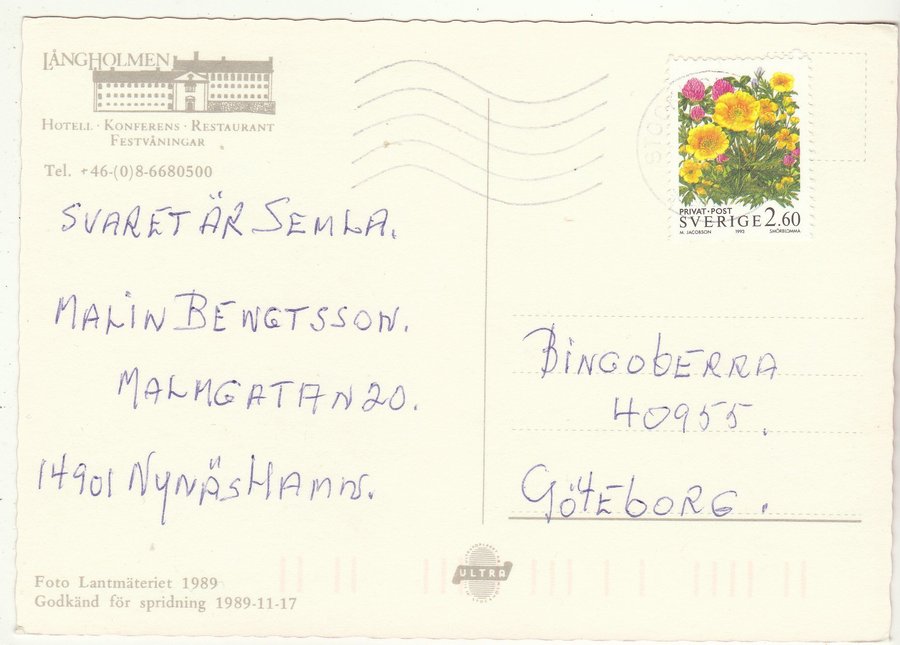 LÅNGHOLMEN
HOTELL · KONFERENS · RESTAURANT
FESTVÅNINGAR
Tel. +46-(0)8-6680500
SVARET ÄR SEMLA.
MALIN BENGTSSON.
MALMGATAN 20.
14901 NYNÄSHAMN.
Foto Lantmäteriet 1989
Godkänd för spridning 1989-11-17
ULTRA
PRIVAT·POST
SVERIGE 2.60
M. JACOBSON 1993 SMÖRBLOMMA
BINGOBERRA
40955.
GÖTEBORG.